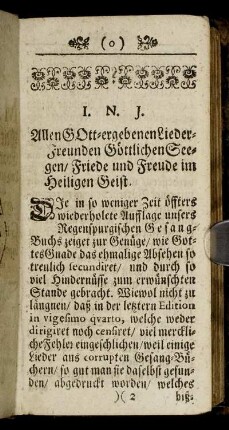 (o)
I. N. J.
Allen GOtt-ergebenen Lieder-
Freunden Göttlichen See-
gen/ Friede und Freude im
Heiligen Geist.
DJe in so weniger Zeit öffters
wiederholete Aufflage unsers
Regenspurgischen Gesang-
Buchs zeiget zur Genüge/ wie Got-
tes Gnade das ehmalige Absehen so
treulich secundiret/ und durch so
viel Hindernüsse zum erwünschten
Stande gebracht. Wiewol nicht zu
längnen/ daß in der letztern Edition
in vigesimo qvarto, welche weder
dirigiret noch censiret/ viel merckli-
che Fehler eingeschlichen/ weil einige
Lieder aus corrupten Gesang-Bü-
chern/ so gut man sie daselbst gefun-
den/ abgedruckt worden/ welches
)( 2 biß-